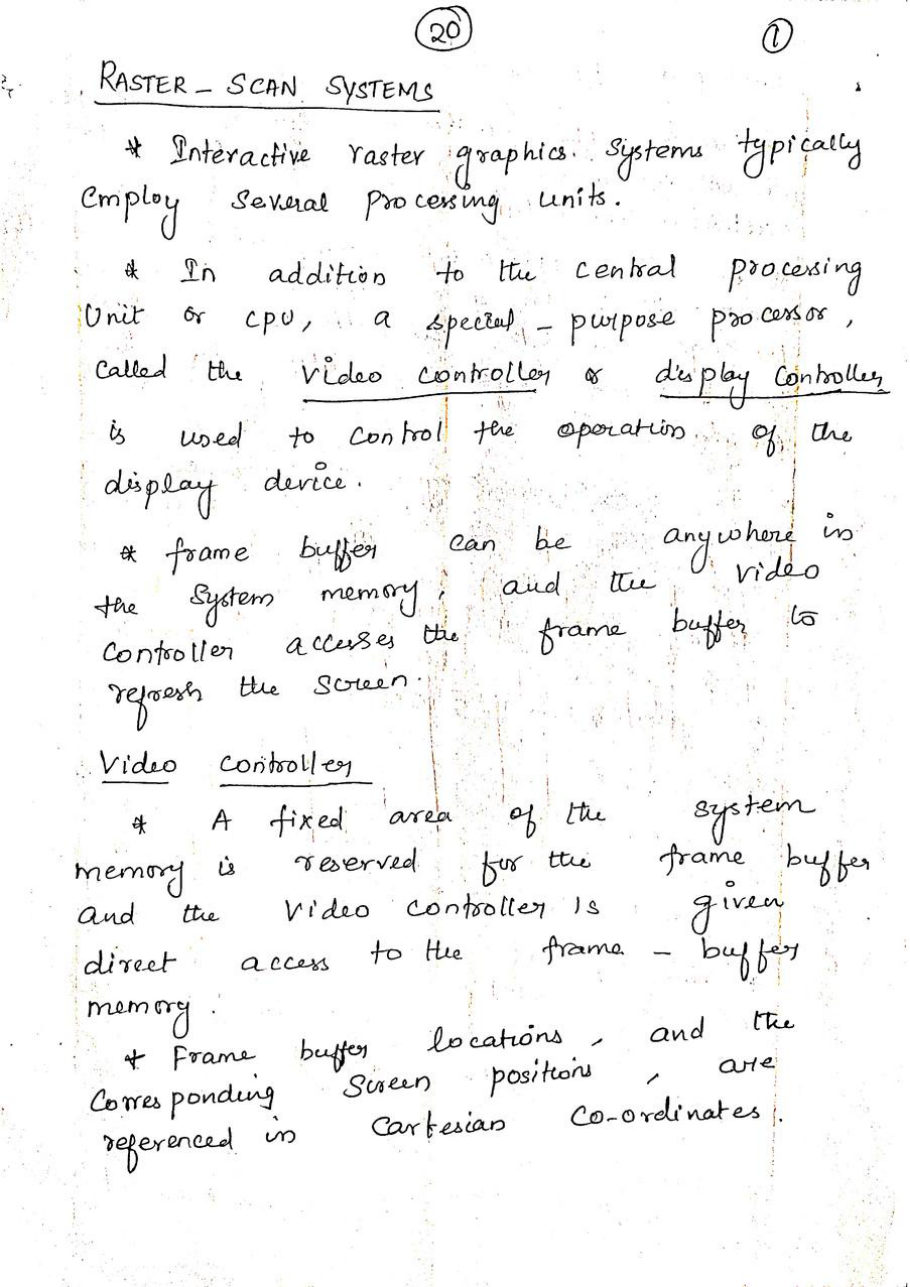 20
1
RASTER - SCAN SYSTEMS
* Interactive raster graphics. Systems typically
employ several processing units.
* In addition to the central processing
Unit or CPU, a special - purpose processor,
called the video controller or display controller
is used to control the operation of the
display device.
* frame buffer can be anywhere in
the system memory, and the video
controller accesses the frame buffer to
refresh the screen.
Video controller
* A fixed area of the system
memory is reserved for the frame buffer
and the video controller is given
direct access to the frame - buffer
memory.
* Frame buffer locations, and the
Corresponding Screen positions, are
referenced in Cartesian Co-ordinates.